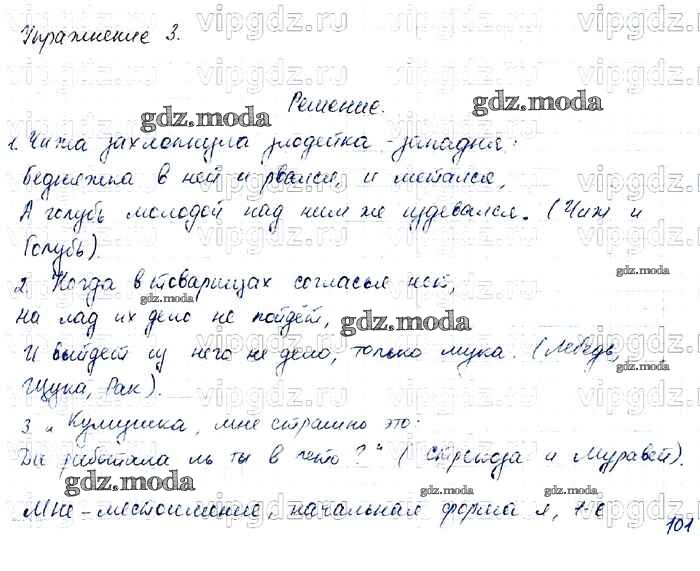 Упражнение 3.
Решение.
1. Чижа захлопнула злодейка-западня:
Бедняжка в ней и рвался, и метался,
А голубь молодой над ним же издевался. (Чиж и
Голубь).
2. Когда в товарищах согласья нет,
На лад их дело не пойдёт,
И выйдет из него не дело, только мука. (Лебедь,
Щука, Рак).
3. „Кумушка, мне странно это:
Да работала ль ты в лето?“ (Стрекоза и Муравей).
Мне – местоимение, начальная форма я, 1-е
101
vipgdz.com
gdz.moda